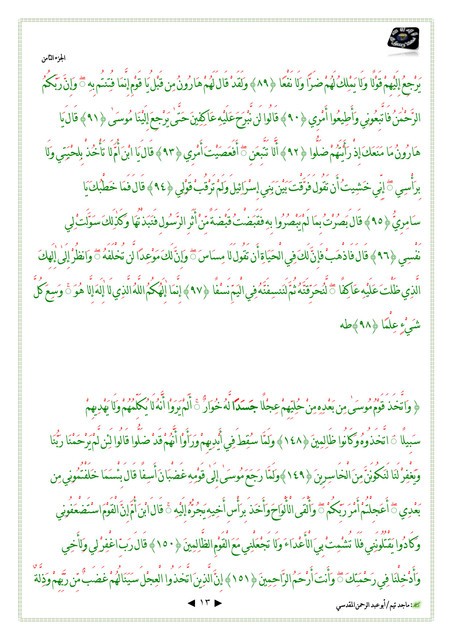 الجزء الثامن
يَرْجِعُ إِلَيْهِمْ قَوْلًا وَلَا يَمْلِكُ لَهُمْ ضَرًّا وَلَا نَفْعًا ﴿٨٩﴾ وَلَقَدْ قَالَ لَهُمْ هَارُونُ مِن قَبْلُ يَا قَوْمِ إِنَّمَا فُتِنتُم بِهِ ۖ وَإِنَّ رَبَّكُمُ
الرَّحْمَٰنُ فَاتَّبِعُونِي وَأَطِيعُوا أَمْرِي ﴿٩٠﴾ قَالُوا لَن نَّبْرَحَ عَلَيْهِ عَاكِفِينَ حَتَّىٰ يَرْجِعَ إِلَيْنَا مُوسَىٰ ﴿٩١﴾ قَالَ يَا
هَارُونُ مَا مَنَعَكَ إِذْ رَأَيْتَهُمْ ضَلُّوا ﴿٩٢﴾ أَلَّا تَتَّبِعَنِ ۖ أَفَعَصَيْتَ أَمْرِي ﴿٩٣﴾ قَالَ يَا ابْنَ أُمَّ لَا تَأْخُذْ بِلِحْيَتِي وَلَا
بِرَأْسِي ۖ إِنِّي خَشِيتُ أَن تَقُولَ فَرَّقْتَ بَيْنَ بَنِي إِسْرَائِيلَ وَلَمْ تَرْقُبْ قَوْلِي ﴿٩٤﴾ قَالَ فَمَا خَطْبُكَ يَا
سَامِرِيُّ ﴿٩٥﴾ قَالَ بَصُرْتُ بِمَا لَمْ يَبْصُرُوا بِهِ فَقَبَضْتُ قَبْضَةً مِّنْ أَثَرِ الرَّسُولِ فَنَبَذْتُهَا وَكَذَٰلِكَ سَوَّلَتْ لِي
نَفْسِي ﴿٩٦﴾ قَالَ فَاذْهَبْ فَإِنَّ لَكَ فِي الْحَيَاةِ أَن تَقُولَ لَا مِسَاسَ ۖ وَإِنَّ لَكَ مَوْعِدًا لَّن تُخْلَفَهُ ۖ وَانظُرْ إِلَىٰ إِلَٰهِكَ
الَّذِي ظَلْتَ عَلَيْهِ عَاكِفًا ۖ لَّنُحَرِّقَنَّهُ ثُمَّ لَنَنسِفَنَّهُ فِي الْيَمِّ نَسْفًا ﴿٩٧﴾ إِنَّمَا إِلَٰهُكُمُ اللَّهُ الَّذِي لَا إِلَٰهَ إِلَّا هُوَ ۚ وَسِعَ كُلَّ
شَيْءٍ عِلْمًا ﴿٩٨﴾طه
﴿ وَاتَّخَذَ قَوْمُ مُوسَىٰ مِن بَعْدِهِ مِنْ حُلِيِّهِمْ عِجْلًا جَسَدًا لَّهُ خُوَارٌ ۚ أَلَمْ يَرَوْا أَنَّهُ لَا يُكَلِّمُهُمْ وَلَا يَهْدِيهِمْ
سَبِيلًا ۘ اتَّخَذُوهُ وَكَانُوا ظَالِمِينَ ﴿١٤٨﴾ وَلَمَّا سُقِطَ فِي أَيْدِيهِمْ وَرَأَوْا أَنَّهُمْ قَدْ ضَلُّوا قَالُوا لَئِن لَّمْ يَرْحَمْنَا رَبُّنَا
وَيَغْفِرْ لَنَا لَنَكُونَنَّ مِنَ الْخَاسِرِينَ ﴿١٤٩﴾ وَلَمَّا رَجَعَ مُوسَىٰ إِلَىٰ قَوْمِهِ غَضْبَانَ أَسِفًا قَالَ بِئْسَمَا خَلَفْتُمُونِي مِن
بَعْدِي ۖ أَعَجِلْتُمْ أَمْرَ رَبِّكُمْ ۖ وَأَلْقَى الْأَلْوَاحَ وَأَخَذَ بِرَأْسِ أَخِيهِ يَجُرُّهُ إِلَيْهِ ۚ قَالَ ابْنَ أُمَّ إِنَّ الْقَوْمَ اسْتَضْعَفُونِي
وَكَادُوا يَقْتُلُونَنِي فَلَا تُشْمِتْ بِيَ الْأَعْدَاءَ وَلَا تَجْعَلْنِي مَعَ الْقَوْمِ الظَّالِمِينَ ﴿١٥٠﴾ قَالَ رَبِّ اغْفِرْ لِي وَلِأَخِي
وَأَدْخِلْنَا فِي رَحْمَتِكَ ۖ وَأَنتَ أَرْحَمُ الرَّاحِمِينَ ﴿١٥١﴾ إِنَّ الَّذِينَ اتَّخَذُوا الْعِجْلَ سَيَنَالُهُمْ غَضَبٌ مِّن رَّبِّهِمْ وَذِلَّةٌ
ماجد تيم / أبو عبد الرحمن المقدسي
١٣